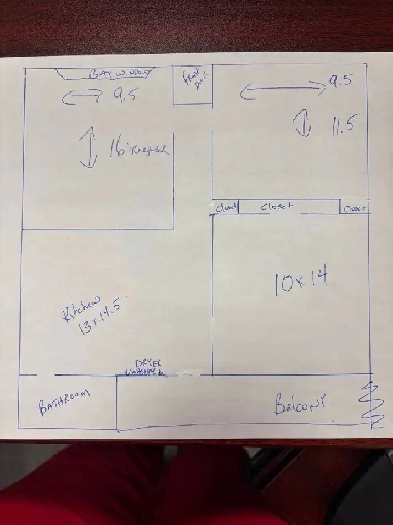 BAY WINDOW
Front
Door
9.5
9.5
11.5
16'
Closet
Closet
Closet
10x14
Kitchen
13x14.5
DRYER
BATHROOM
BALCONY